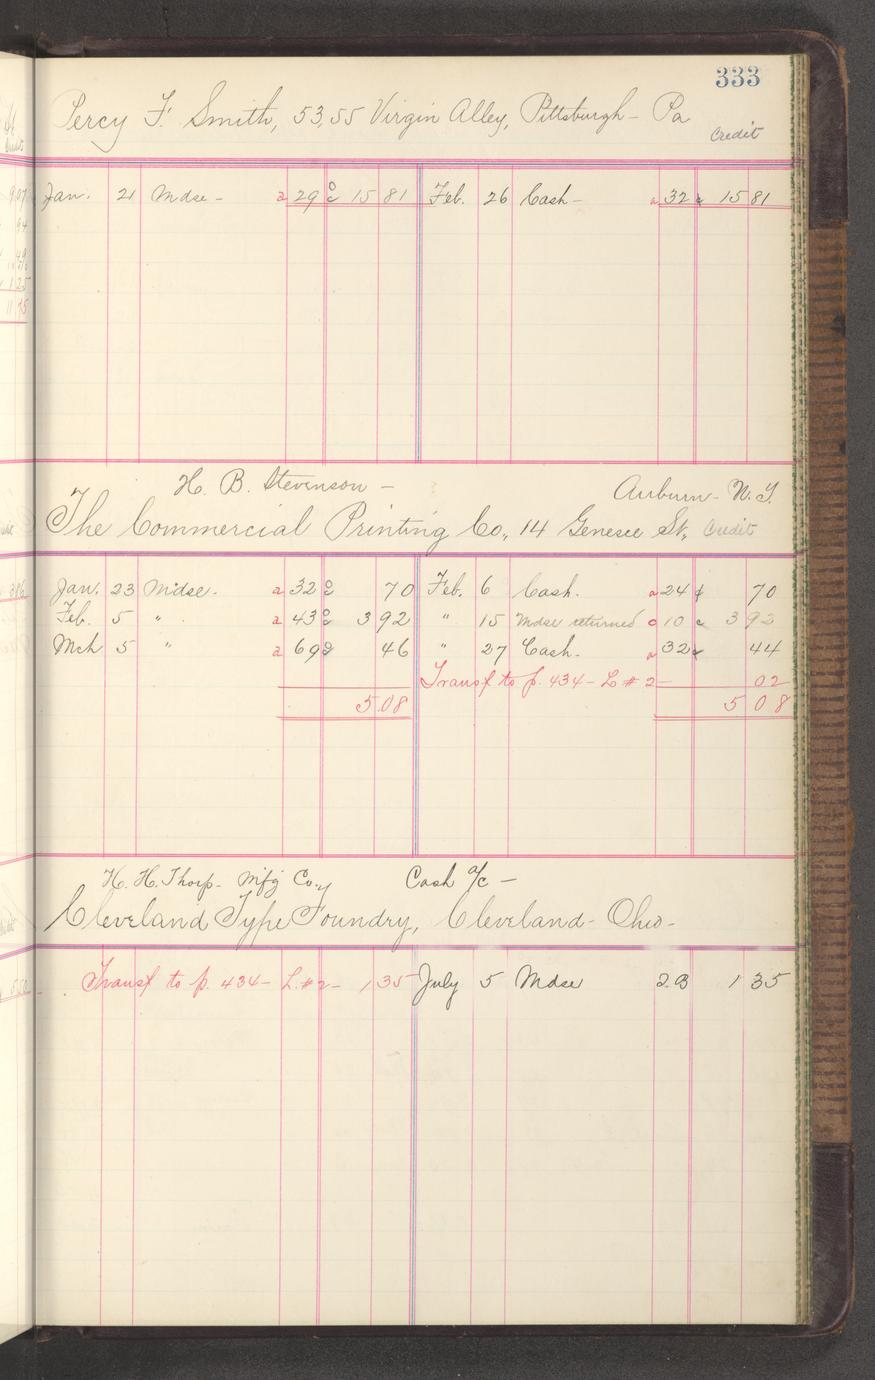 333
Percy F. Smith, 53,55 Virgin Alley, Pittsburgh - Pa
Credit
Jan. 21 Mdse - a 29 15 81 Feb. 26 Cash - a 32 15 81
H. B. Stevenson - Auburn - N.Y.
The Commercial Printing Co., 14 Genesee St, Credit
Jan. 23 Mdse. a 32 70 Feb. 6 Cash. a 24 70
Feb. 5 " a 43 3 92 " 15 Mdse returned c 10 3 92
Mch 5 " a 69 46 " 27 Cash. a 32 44
Transf to p. 434 - L # 2 - 02
5 08 5 08
H. H. Thorp - Mfg Co.y Cash a/c -
Cleveland Type Foundry, Cleveland - Ohio -
Transf to p. 434 - L. # 2 - 1 35 July 5 Mdse 2 B 1 35